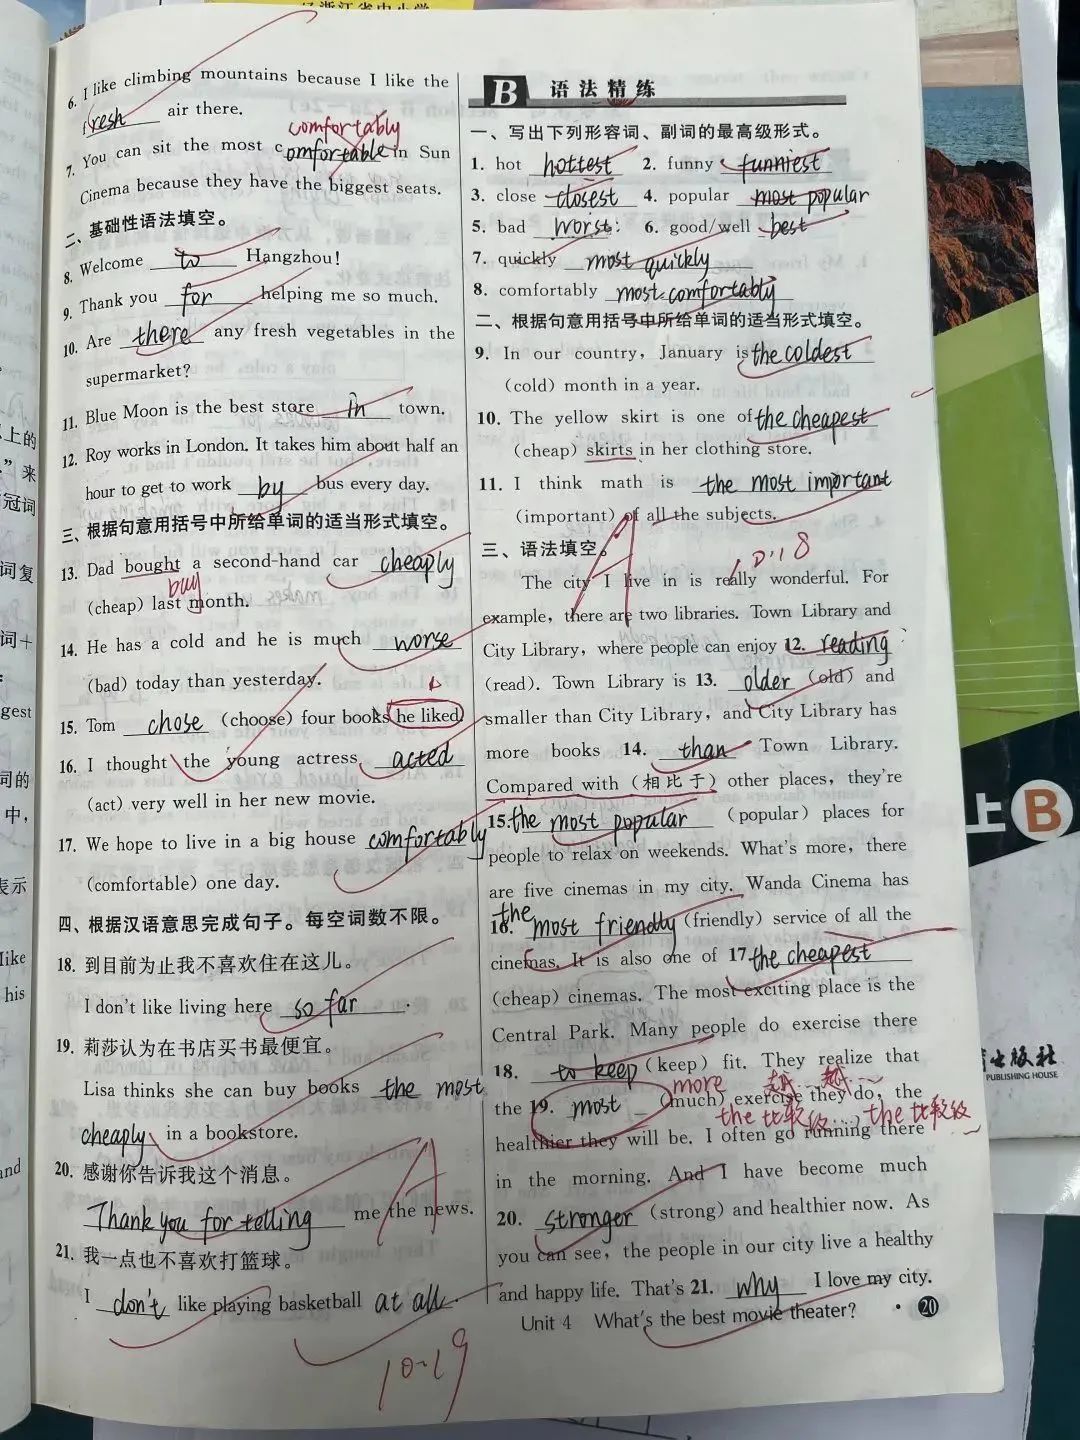 6. I like climbing mountains because I like the
fresh air there.
comfortably
7. You can sit the most comfortable in Sun
Cinema because they have the biggest seats.
二、基础性语法填空。
8. Welcome to Hangzhou!
9. Thank you for helping me so much.
10. Are there any fresh vegetables in the
supermarket?
11. Blue Moon is the best store in town.
12. Roy works in London. It takes him about half an
hour to get to work by bus every day.
三、根据句意用括号中所给单词的适当形式填空。
13. Dad bought a second-hand car cheaply
buy
(cheap) last month.
14. He has a cold and he is much worse
(bad) today than yesterday.
15. Tom chose (choose) four books he liked
16. I thought the young actress acted
(act) very well in her new movie.
17. We hope to live in a big house comfortably
(comfortable) one day.
四、根据汉语意思完成句子。每空词数不限。
18. 到目前为止我不喜欢住在这儿。
I don't like living here so far .
19. 莉莎认为在书店买书最便宜。
Lisa thinks she can buy books the most
cheaply in a bookstore.
20. 感谢你告诉我这个消息。
Thank you for telling me the news.
21. 我一点也不喜欢打篮球。
I don't like playing basketball at all .
A
10.19
B 语法精练
一、写出下列形容词、副词的最高级形式。
1. hot hottest 2. funny funniest
3. close closest 4. popular most popular
5. bad worst 6. good/well best
7. quickly most quickly
8. comfortably most comfortably
二、根据句意用括号中所给单词的适当形式填空。
9. In our country, January is the coldest
(cold) month in a year.
10. The yellow skirt is one of the cheapest
(cheap) skirts in her clothing store.
11. I think math is the most important
(important) of all the subjects.
三、语法填空。
A 10.18
The city I live in is really wonderful. For
example, there are two libraries. Town Library and
City Library, where people can enjoy 12. reading
(read). Town Library is 13. older (old) and
smaller than City Library, and City Library has
more books 14. than Town Library.
Compared with (相比于) other places, they're
15. the most popular (popular) places for
people to relax on weekends. What's more, there
are five cinemas in my city. Wanda Cinema has
16. the most friendly (friendly) service of all the
cinemas. It is also one of 17. the cheapest
(cheap) cinemas. The most exciting place is the
Central Park. Many people do exercise there
18. to keep (keep) fit. They realize that
more 越…越…
the 19. most (much) exercise they do, the
the 比较级…, the 比较级
healthier they will be. I often go running there
in the morning. And I have become much
20. stronger (strong) and healthier now. As
you can see, the people in our city live a healthy
and happy life. That's 21. why I love my city.
Unit 4 What's the best movie theater? · 20
上B
出版社
PUBLISHING HOUSE
上的
” 来
冠词
词复
词+
gest
词的
中,
表示
like
his
and